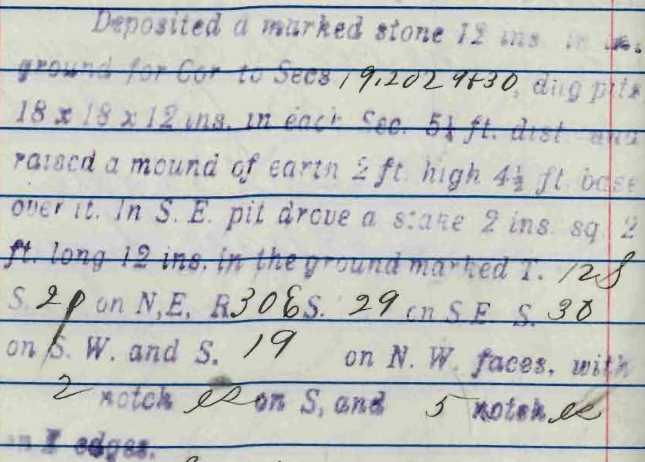 Deposited a marked stone 12 ins in
ground for Cor to Secs 19.20 29+30, dug pits
18 x 18 x 12 ins. in each Sec. 5½ ft. dist and
raised a mound of earth 2 ft high 4½ ft base
over it. In S. E. pit drove a stake 2 ins. sq 2
ft. long 12 ins. in the ground marked T. 12S
S. 20 on N.E. R30E S. 29 on S.E. S. 30
on S. W. and S. 19 on N. W. faces, with
2 notches on S, and 5 notches
edges.